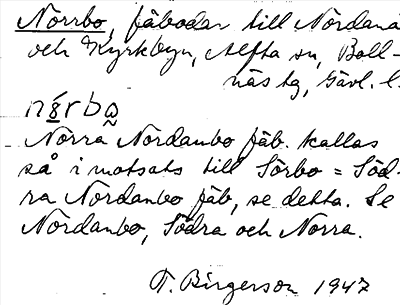 Norrbo, fäbodar till Nordanå
och Kyrkbyn, Alfta sn, Boll-
näs tg, Gävl. l.
nórba
Norra Nordanbo fäb. kallas
så i motsats till Sörbo = Söd-
ra Nordanbo fäb, se detta. Se
Nordanbo, Södra och Norra.
T. Birgerson 1947